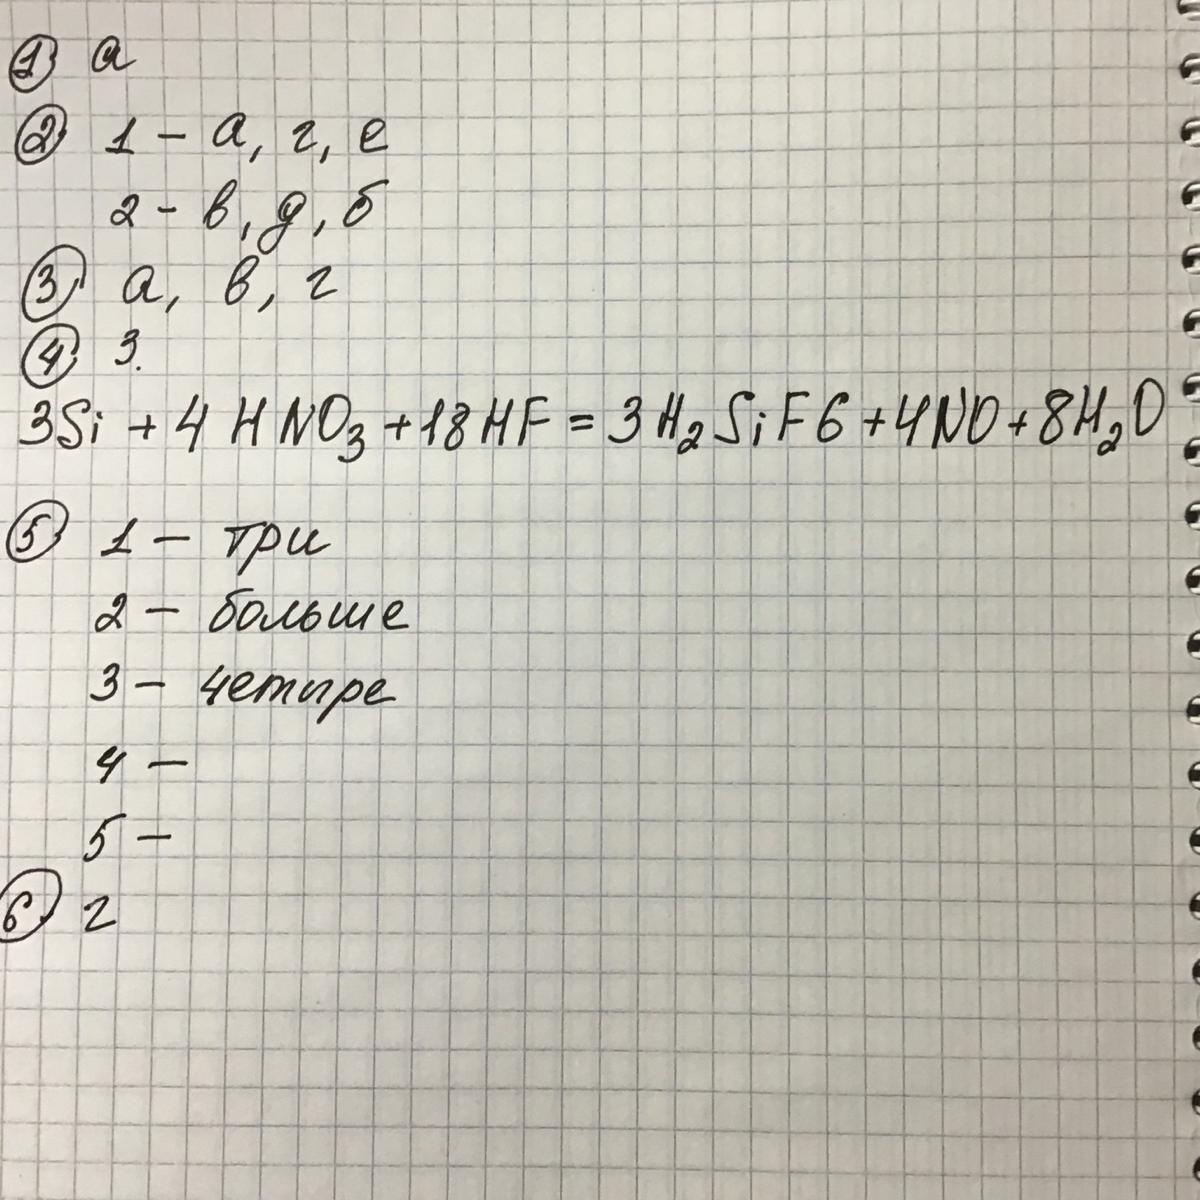 ① а
② 1 – а, г, е
2 – в, д, б
③ а, в, г
④ 3.
3Si + 4HNO₃ + 18HF = 3H₂SiF6 + 4NO + 8H₂O
⑤ 1 – три
2 – больше
3 – четыре
4 –
5 –
⑥ г